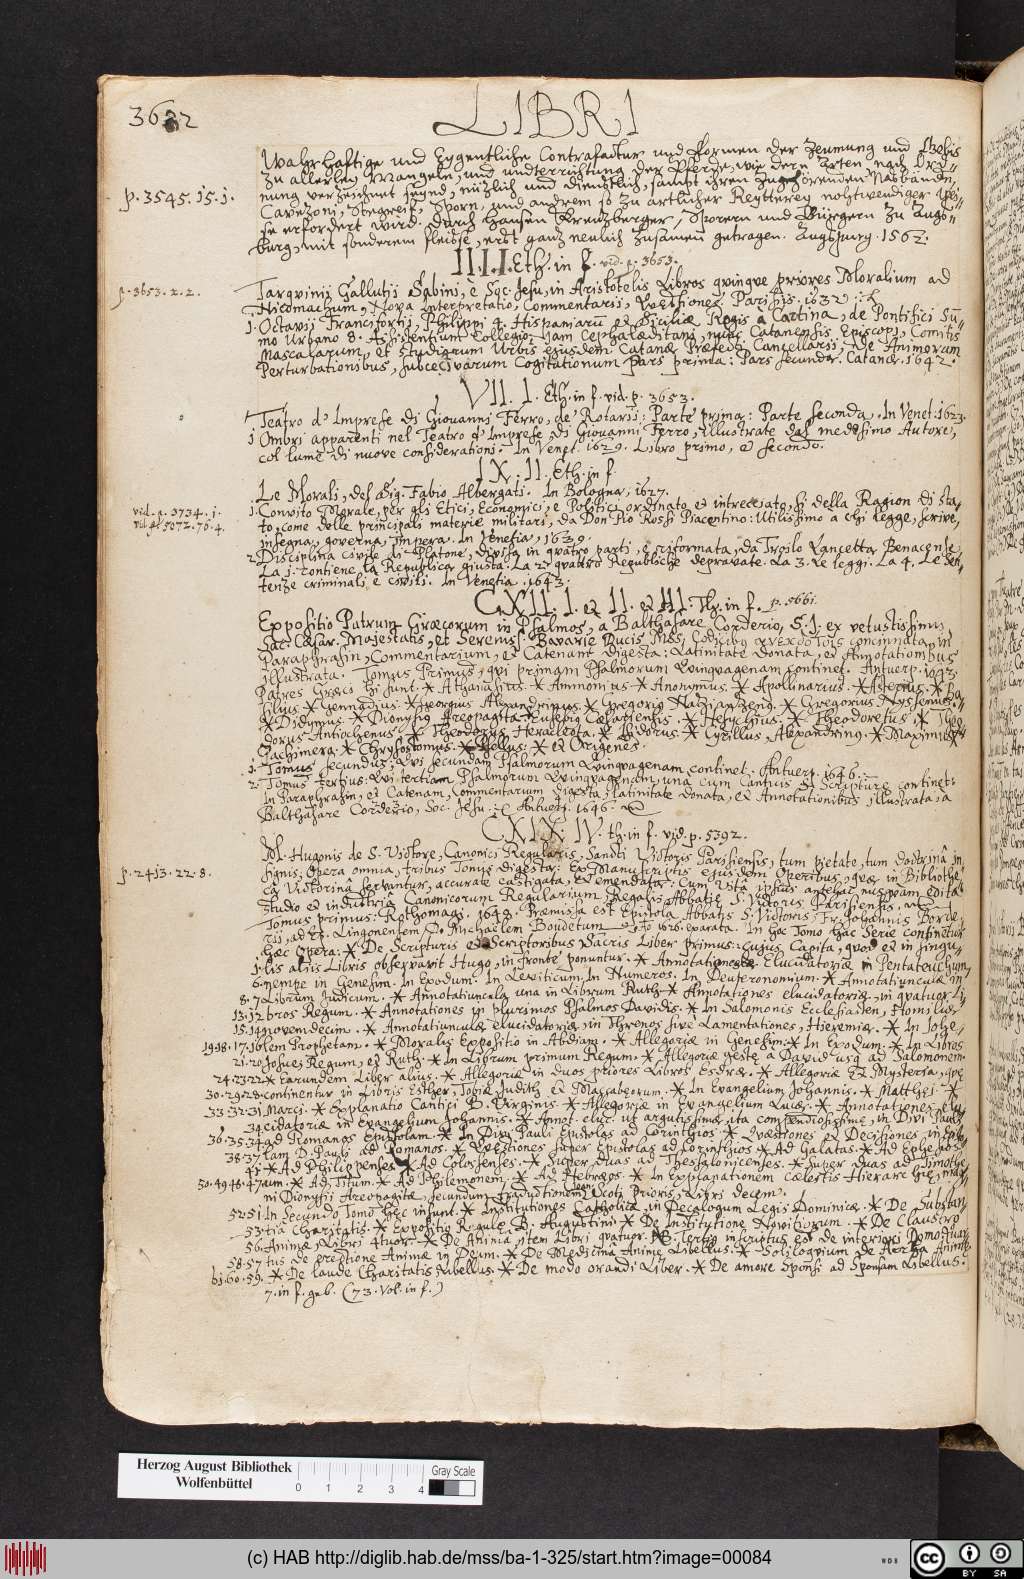 3632
LIBRI
Wahrhaftige und Eygentliche Contrafactur und Formen der Zeumung und Gebis
zu allerlay Mangeln, und underrichtung der Pferde, wie dern Arten nach Ord-
p. 3545. 15. 1.
nung verzeichnet seynd, nützlich und dienstlich, sampt ihren zugehörenden Nasbanden,
Cavezoni, Stegreif, Sporn, und andrem so zu artlicher Reytterey nohtwendiger wei-
se erfordert wird. Durch Hansen Kreutzberger, Sporern und Bürgern zu Augs-
burg, mit sonderem fleisse, erst ganz neulich zusamen getragen. Augspurg. 1562.
III. I. Eth. in f. vid. p. 3653.
p. 3653. 2. 2.
Tarquinij Gallutij Sabini, è Soc. Jesu, in Aristotelis Libros quinque priores Moralium ad
Nicomachum, Nova Interpretatio, Commentarii, Quæstiones. Parisijs. 1632
1. Octavij Francifortij, Philippi 4. Hispaniarū & Siciliæ Regis à Cartina, de Pontifici Su-
mo Urbano 8. Assistentium Collegio: Jam Cephalæditani, nunc Catanensis Episcopi, Comitis
Mascalarum, et Studiorum Urbis ejusdem Catanæ Præfecti Cancellarij, De Animorum
Perturbationibus, subcesivarum Cogitationum pars prima: Pars secunda. Catanæ. 1642.
VII. I. Eth. in f. vid. p. 3653.
Teatro d' Imprese di Giovanni Ferro, de' Rotarij: Parte prima: Parte seconda. In Venet. 1623.
1 Ombri apparenti nel Teatro d' Imprese, di Giovanni Ferro, illustrate dal medesimo Autore,
col lume di nuove considerationi. In Venet. 1629. Libro primo, e secondo.
IX. II. Eth. in f.
Le Morali, del Sig. Fabio Albergati. In Bologna, 1627.
vid. p. 3734. 1.
1. Convito Morale, per gli Etici, Economici, e Politici ordinato et intrecciato, si della Ragion di Sta-
to, come delle principali materie militari, da Don Pio Rossi Piacentino: Utilissimo a chi legge, scrive,
insegna, governa, impera. In Venetia, 1639.
2. Disciplina civile di Platone, divisa in quatro parti, e riformata, da Troilo Lancetta Benacense,
La 1. contiene la Republica giusta. La 2. quattro Republiche depravate. La 3. Le leggi. La 4. Le Sen-
tenze criminali e civili. In Venetia. 1643.
CXII. I. et II. et III. Th. in f. p. 5661
Expositio Patrum Græcorum in Psalmos, a Balthasare Corderio, S. J. ex vetustissimis
Sac. Cæsar. Majestatis, et Sereniss. Bavariæ Ducis Mss. Codicibus concinnata, in
Paraphrasin, Commentarium, et Catenam digesta: Latinitate donata, et Annotationibus
illustrata. Tomus Primus, qui primam Psalmorum Quinquagenam continet. Antuerp. 1643.
Patres Græci hi sunt. * Athanasius. * Ammonius * Anonymus. * Apollinarius. * Asterius. * Ba-
silius * Gennadius. * Georgius Alexandrinus. * Gregorig Nazianzeng. * Gregorius Nyssenus.
* Didymus. * Dionysig Areopagita. * Eusebig Cæsariensis. * Hesychius. * Theodoretus. * Theo-
dorus Antiochenus. * Theodorus Heracleota. * Isidorus. * Cyrillus Alexandring. * Maximus
Pachimera. * Chrysostomus. * Psellus. * et Origenes.
1. Tomus secundus, Qui secundam Psalmorum Quinquagenam continet. Antuerp. 1646.
2. Tomus tertius. Qui tertiam Psalmorum Quinquagenam, una cum Canticis S. Scripturæ continet:
In Paraphrasin, et Catenam, Commentarium digesta, latinitate donata, et Annotationibus illustrata, a
Balthasare Corderio, Soc. Jesu. Antuerp. 1646.
CXIX. IV. th. in f. vid. p. 5392.
p. 2413. 22. 8.
M. Hugonis de S. Victore, Canonici Regularis, Sancti Victoris Parisiensis, tum pietate, tum doctrina in-
signis, Opera omnia, tribus Tomis digesta: Ex Manuscriptis ejusdem Operibus, quæ in Bibliothe-
câ Victorina servantur, accurate castigata, et emendata. Cum Vita ipsius antehac nusquam edita
Studio et industria Canonicorum Regularium Regalis Abbatiæ S. Victoris Parisiensis.
Tomus primus: Rothomagi. 1648. Præmissa est Epistola Abbatis S. Victoris, Fr. Johannis Borde-
rij, ad Ep. Lingonensem, D. Michaelem Boudetum 1626. exarata. In hoc Tomo hac Serie continentur
hæc Opera. * De Scripturis et Scriptoribus Sacris Liber primus: cujus Capita, quod et in singu-
1. lis alijs Libris observavit Hugo, in fronte ponuntur. * Annotationes Elucidatoriæ in Pentateuchum,
6. nempe in Genesim. In Exodum. In Leviticum. In Numeros. In Deuteronomium. * Annotatiunculæ in
8. 7 Librum Judicum. * Annotatiuncula una in Librum Ruth. * Annotationes elucidatoriæ, in quatuor Li-
13. 12 bros Regum. * Annotationes in plurimos Psalmos Davidis. * In Salomonis Ecclesiasten, Homiliæ
15. 14 novemdecim. * Annotatiunculæ elucidatoriæ, in Threnos sive Lamentationes, Hieremiæ. * In Joe-
19. 18. 17. 16 lem Prophetam. * Moralis Expositio in Abdiam. * Allegoriæ in Genesim. * In Exodum. * In Libros
21. 20 Josue, Regum, et Ruth. * In Librum primum Regum. * Allegoriæ gestæ a David usq ad Salomonem.
24. 23 22 * Earundem Liber alius. * Allegoriæ in duos priores Libros Esdræ. * Allegoriæ Et Mysteria, quæ
30. 29. 28. continentur in Libris Esther, Tobiæ, Judith, et Maccabeorum. * In Evangelium Johannis. * Matthæi. *
33. 32. 31 Marci. * Explanatio Cantici B. Virginis. * Allegoriæ in Evangelium Lucæ. * Annotationes elu-
34 cidatoriæ in Evangelium Johannis. * Annot. eluc. ut argutissimæ, ita compendiosissimæ, in Divi Pauli
36. 35. 34 ad Romanos Epistolam. * In Divi Pauli Epistolas ad Corinthios. * Quæstiones et Decisiones in Epis-
38. 37 lam D. Pauli ad Romanos. * Quæstiones super Epistolas ad Corinthios. * Ad Galatas. * Ad Ephesios.
* Ad Philippenses. * Ad Colossenses. * Super duas ad Thessalonicenses. * Super duas ad Timothe-
50. 49 48. 47 um. * Ad Titum. * Ad Philemonem. * Ad Hebræos. * In Explanationem Cælestis Hierarchiæ mag-
ni Dionysij Areopagitæ, secundum traductionem Joan. Scoti Prioris, Libri decem.
52. 51 In Secundo Tomo hæc insunt. * Institutiones Catholicæ, in Decalogum Legis Dominicæ. * De Substan-
53. tia Charitatis. * Expositio Regulæ B. Augustini. * De Institutione Novitiorum. * De Claustro
56. Animæ, Libri 4tuor. * De Anima, item Libri quatuor. NB. Tertio inscriptus est de interiori Domo, quar-
58. 57 tus de erectione Animæ in Deum. * De Medicina Animæ Libellus. * Soliloquium de Arrha Animæ.
61. 60. 59. * De laude Charitatis Libellus. * De modo orandi Liber. * De amore Sponsi ad Sponsam Libellus.
7. in f. geb. (73. Vol. in f.)
Herzog August Bibliothek
Wolfenbüttel
0 1 2 3 4
Gray Scale
(c) HAB http://diglib.hab.de/mss/ba-1-325/start.htm?image=00084
WDB
CC BY SA